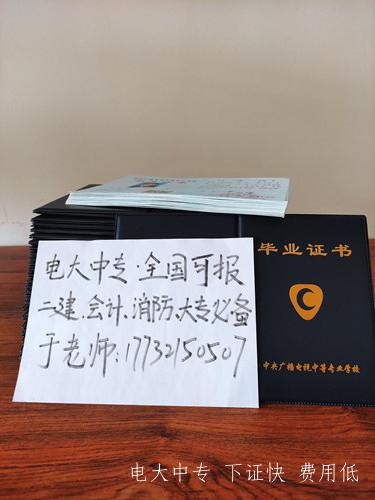 毕业证书
中央广播电视中等专业学校
电大中专·全国可报
二建、会计、消防、大专必备
于老师:17732150507
电大中专 下证快 费用低